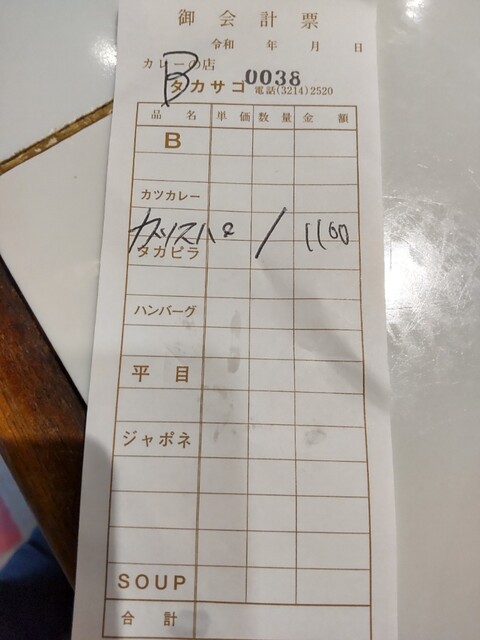 御会計票
令和 年 月 日
カレーの店
B
タカサゴ 0038 電話(3214)2520
品名 単価 数量 金額
B
カツカレー
カツスパ / 1100
タカピラ
ハンバーグ
平目
ジャポネ
SOUP
合計